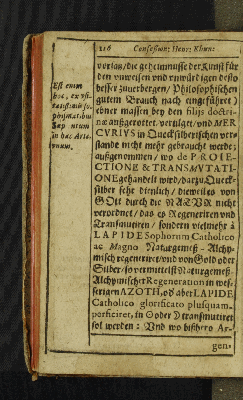 216 Consensus: Henr: Khun:
vorlag/ die geheimnusse der Kunst für
den vnweisen vnd vnwürdigen desto
besser zuverbergen/ Philosophischen
gutem Brauch nach eingeführet)
ebner massen bey den filijs doctri-
næ außgerottet, vertilget/ vnd MER
CVRIVS in Quecksilberischen ver-
stande nicht mehr gebraucht werde;
außgenommen/ wo de PROIE-
CTIONE & TRANSMVTATI-
ONE gehandelt wird/ darzu Queck-
silber sehr dienlich/ dieweil es von
GOtt durch die NATVR nicht
verordnet/ das es Regeneriren vnd
Transmutiren/ sondern vielmehr à
LAPIDE Sophorum Catholico
ac Magno Naturgemeß-Alchy-
misch regenerirt/ vnd von Gold oder
Silber/ so vermittelst Naturgemeß-
Alchymischer Regeneration in wes-
serigen AZOTH, oder LAPIDE
Catholico glorificato plusquam-
perficirer, in ☉ oder ☽ transmutiret
sol werden: Vnd wo bißhero Ar-
gen-
Est enim
hoc, ex